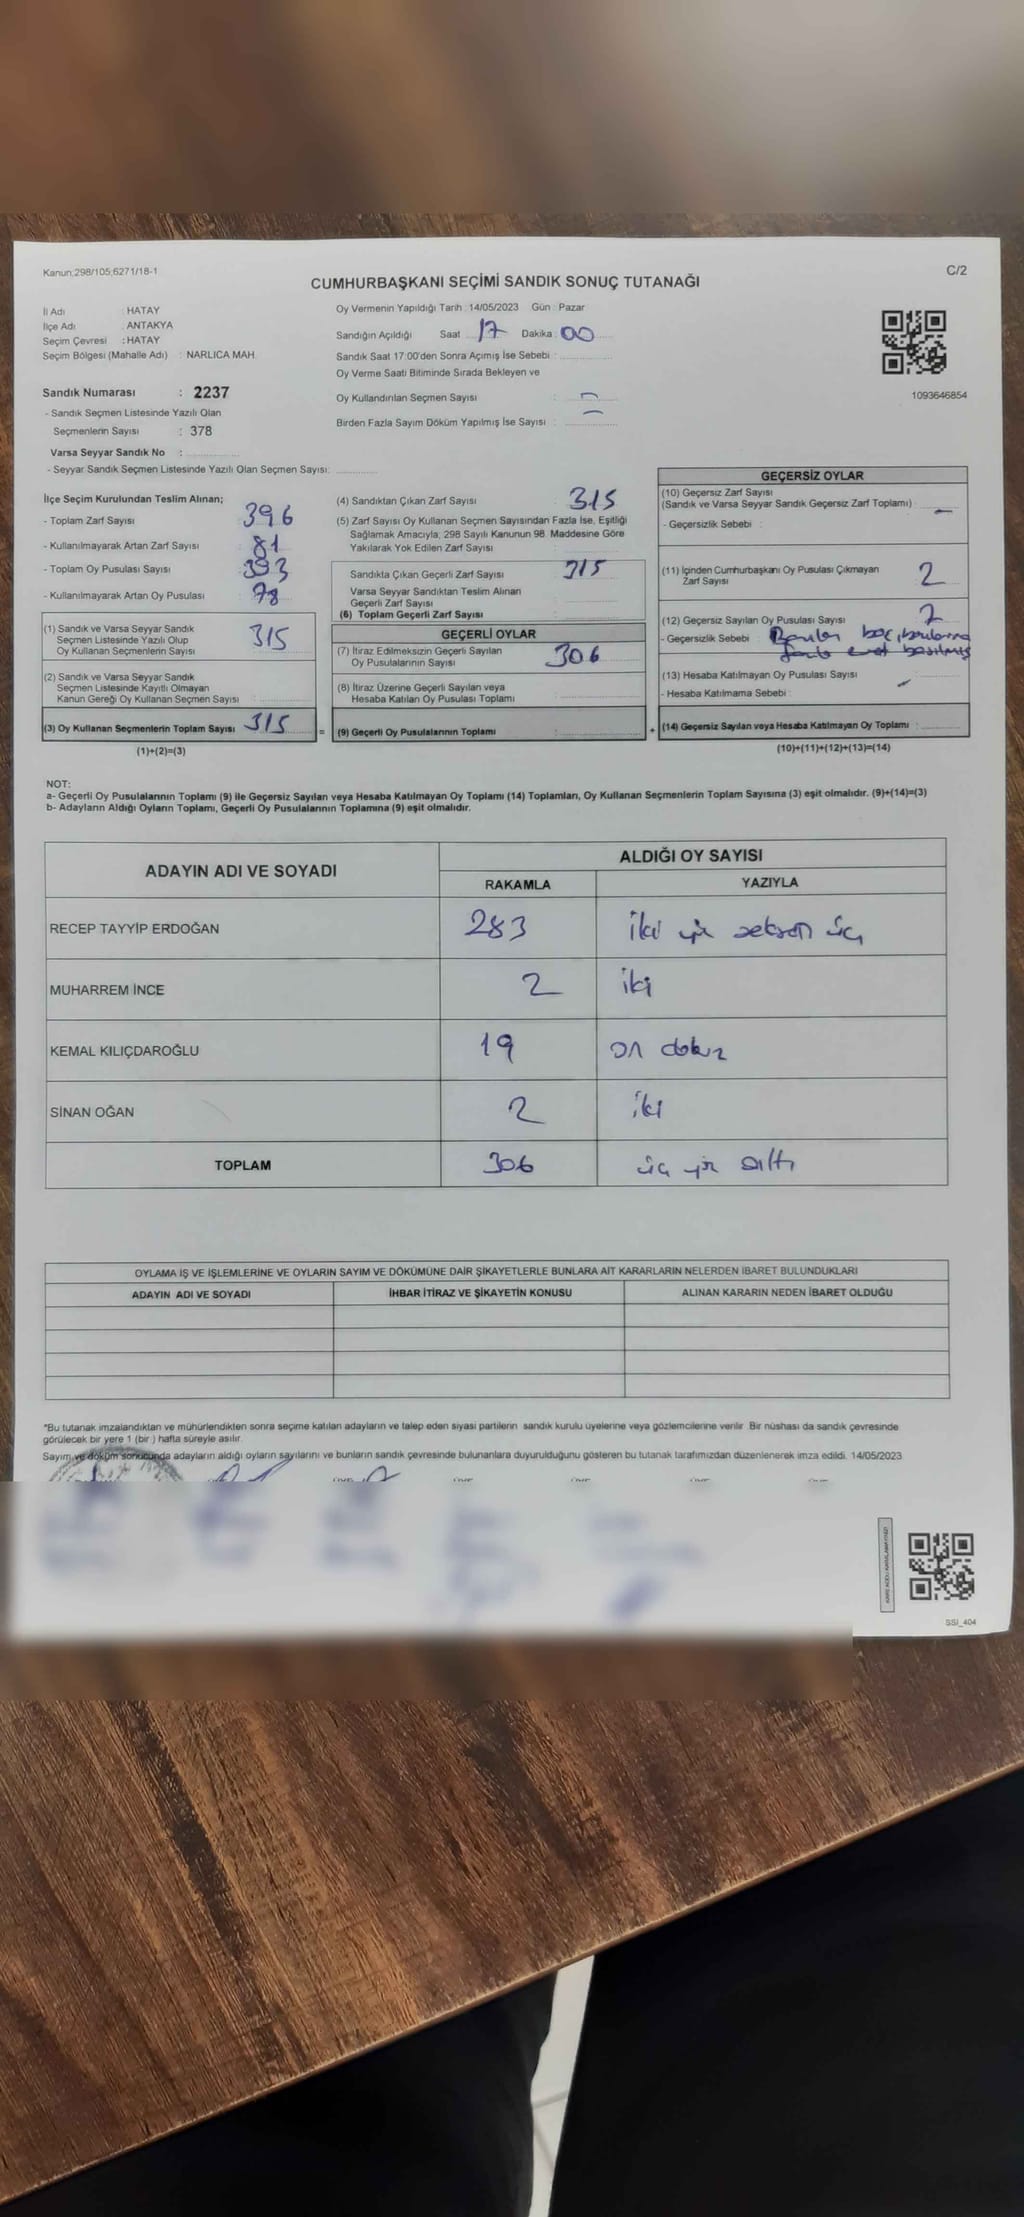 Kanun;298/105;6271/18-1
C/2
CUMHURBAŞKANI SEÇİMİ SANDIK SONUÇ TUTANAĞI
İl Adı : HATAY
İlçe Adı : ANTAKYA
Seçim Çevresi : HATAY
Seçim Bölgesi (Mahalle Adı) : NARLICA MAH.
Sandık Numarası : 2237
- Sandık Seçmen Listesinde Yazılı Olan
Seçmenlerin Sayısı : 378
Varsa Seyyar Sandık No :
- Seyyar Sandık Seçmen Listesinde Yazılı Olan Seçmen Sayısı:
Oy Vermenin Yapıldığı Tarih : 14/05/2023 Gün : Pazar
Sandığın Açıldığı Saat : 17 Dakika : 00
Sandık Saat 17:00'den Sonra Açımış İse Sebebi :
Oy Verme Saati Bitiminde Sırada Bekleyen ve
Oy Kullandırılan Seçmen Sayısı : —
Birden Fazla Sayım Döküm Yapılmış İse Sayısı : —
1093646854
İlçe Seçim Kurulundan Teslim Alınan;
- Toplam Zarf Sayısı : 396
- Kullanılmayarak Artan Zarf Sayısı : 81
- Toplam Oy Pusulası Sayısı : 393
- Kullanılmayarak Artan Oy Pusulası : 78
(1) Sandık ve Varsa Seyyar Sandık
Seçmen Listesinde Yazılı Olup
Oy Kullanan Seçmenlerin Sayısı : 315
(2) Sandık ve Varsa Seyyar Sandık
Seçmen Listesinde Kayıtlı Olmayan
Kanun Gereği Oy Kullanan Seçmen Sayısı :
(3) Oy Kullanan Seçmenlerin Toplam Sayısı : 315
(1)+(2)=(3)
(4) Sandıktan Çıkan Zarf Sayısı : 315
(5) Zarf Sayısı Oy Kullanan Seçmen Sayısından Fazla İse, Eşitliği
Sağlamak Amacıyla, 298 Sayılı Kanunun 98. Maddesine Göre
Yakılarak Yok Edilen Zarf Sayısı :
Sandıkta Çıkan Geçerli Zarf Sayısı : 315
Varsa Seyyar Sandıktan Teslim Alınan
Geçerli Zarf Sayısı :
(6) Toplam Geçerli Zarf Sayısı :
GEÇERLİ OYLAR
(7) İtiraz Edilmeksizin Geçerli Sayılan
Oy Pusulalarının Sayısı : 306
(8) İtiraz Üzerine Geçerli Sayılan veya
Hesaba Katılan Oy Pusulası Toplamı :
= (9) Geçerli Oy Pusulalarının Toplamı :
GEÇERSİZ OYLAR
(10) Geçersiz Zarf Sayısı
(Sandık ve Varsa Seyyar Sandık Geçersiz Zarf Toplamı) : —
- Geçersizlik Sebebi :
(11) İçinden Cumhurbaşkanı Oy Pusulası Çıkmayan
Zarf Sayısı : 2
(12) Geçersiz Sayılan Oy Pusulası Sayısı : 7
- Geçersizlik Sebebi :
(13) Hesaba Katılmayan Oy Pusulası Sayısı : —
- Hesaba Katılmama Sebebi :
+ (14) Geçersiz Sayılan veya Hesaba Katılmayan Oy Toplamı :
(10)+(11)+(12)+(13)=(14)
NOT:
a- Geçerli Oy Pusulalarının Toplamı (9) ile Geçersiz Sayılan veya Hesaba Katılmayan Oy Toplamı (14) Toplamları, Oy Kullanan Seçmenlerin Toplam Sayısına (3) eşit olmalıdır. (9)+(14)=(3)
b- Adayların Aldığı Oyların Toplamı, Geçerli Oy Pusulalarının Toplamına (9) eşit olmalıdır.
ADAYIN ADI VE SOYADI
ALDIĞI OY SAYISI
RAKAMLA YAZIYLA
RECEP TAYYİP ERDOĞAN 283 iki yüz seksen üç
MUHARREM İNCE 2 iki
KEMAL KILIÇDAROĞLU 19 on dokuz
SİNAN OĞAN 2 iki
TOPLAM 306 üç yüz altı
OYLAMA İŞ VE İŞLEMLERİNE VE OYLARIN SAYIM VE DÖKÜMÜNE DAİR ŞİKAYETLERLE BUNLARA AİT KARARLARIN NELERDEN İBARET BULUNDUKLARI
ADAYIN ADI VE SOYADI İHBAR İTİRAZ VE ŞİKAYETİN KONUSU ALINAN KARARIN NEDEN İBARET OLDUĞU
*Bu tutanak imzalandıktan ve mühürlendikten sonra seçime katılan adayların ve talep eden siyasi partilerin sandık kurulu üyelerine veya gözlemcilerine verilir. Bir nüshası da sandık çevresinde
görülecek bir yere 1 (bir ) hafta süreyle asılır.
Sayım ve döküm sonucunda adayların aldığı oyların sayılarını ve bunların sandık çevresinde bulunanlara duyurulduğunu gösteren bu tutanak tarafımızdan düzenlenerek imza edildi. 14/05/2023
SSİ_404